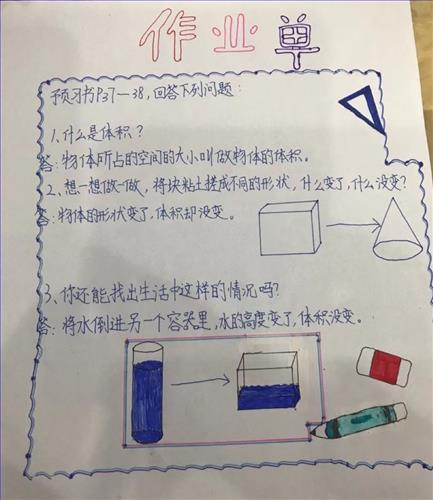 作业单
预习书P37—38,回答下列问题:
1.什么是体积?
答:物体所占的空间的大小叫做物体的体积。
2.想一想做一做,将块粘土搓成不同的形状,什么变了,什么没变?
答:物体的形状变了,体积却没变。
3.你还能找出生活中这样的情况吗?
答:将水倒进另一个容器里,水的高度变了,体积没变。